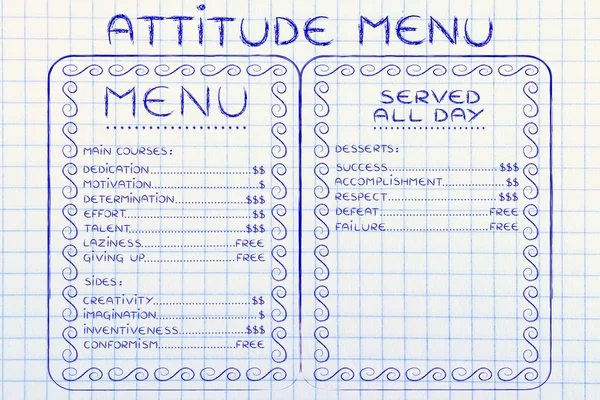 ATTITUDE MENU
MENU
MAIN COURSES:
DEDICATION....................$$
MOTIVATION....................$
DETERMINATION..............$$$
EFFORT..........................$$
TALENT.........................$$$
LAZINESS....................FREE
GIVING UP...................FREE
SIDES:
CREATIVITY....................$$
IMAGINATION...................$
INVENTIVENESS..............$$$
CONFORMISM...............FREE
SERVED
ALL DAY
DESSERTS:
SUCCESS.......................$$$
ACCOMPLISHMENT............$$
RESPECT.......................$$$
DEFEAT.......................FREE
FAILURE......................FREE